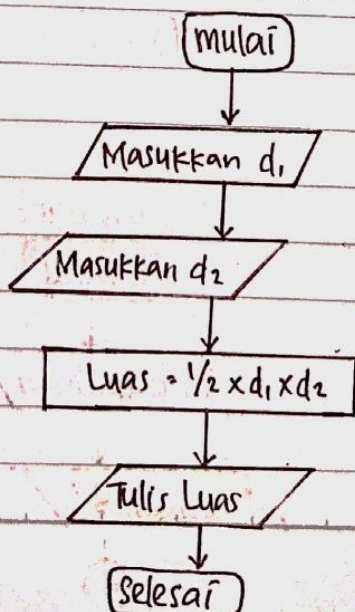 mulai
Masukkan d₁
Masukkan d₂
Luas = 1/2 x d₁ x d₂
Tulis Luas
Selesai